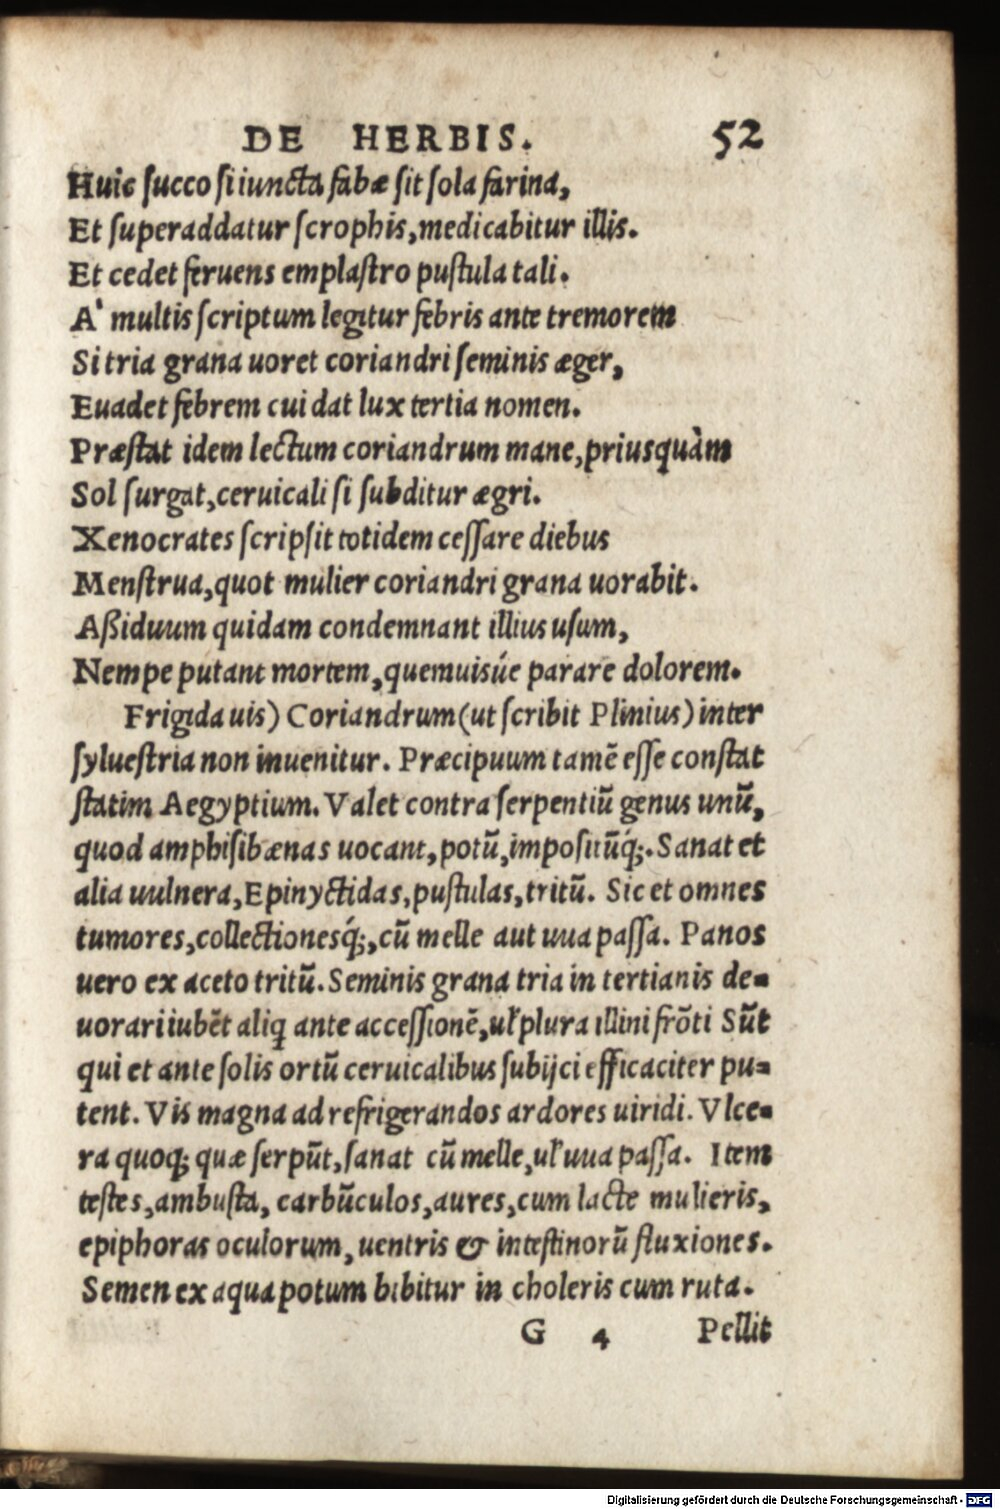 DE HERBIS. 52
Huic succo si iuncta fabæ sit sola farina,
Et superaddatur scrophis, medicabitur illis.
Et cedet feruens emplastro pustula tali.
A' multis scriptum legitur febris ante tremorem
Si tria grana uoret coriandri seminis æger,
Euadet febrem cui dat lux tertia nomen.
Præstat idem lectum coriandrum mane, priusquàm
Sol surgat, ceruicali si subditur ægri.
Xenocrates scripsit totidem cessare diebus
Menstrua, quot mulier coriandri grana uorabit.
Aßiduum quidam condemnant illius usum,
Nempe putant mortem, quemuisúe parare dolorem.
Frigida uis) Coriandrum (ut scribit Plinius) inter
syluestria non inuenitur. Præcipuum tamē esse constat
statim Aegyptium. Valet contra serpentiū genus unū,
quod amphisibænas uocant, potū, impositūq́;. Sanat et
alia uulnera, Epinyctidas, pustulas, tritū. Sic et omnes
tumores, collectionesq́;, cū melle aut uua passa. Panos
uero ex aceto tritū. Seminis grana tria in tertianis de-
uorari iubēt aliq ante accessionē, uł plura illini frōti Sūt
qui et ante solis ortū ceruicalibus subijci efficaciter pu-
tent. Vis magna ad refrigerandos ardores uiridi. Vlce-
ra quoq; quæ serpūt, sanat cū melle, uł uua passa. Item
testes, ambusta, carbūculos, aures, cum lacte mulieris,
epiphoras oculorum, uentris & intestinorū fluxiones.
Semen ex aqua potum bibitur in choleris cum ruta.
G 4 Pellit
Digitalisierung gefördert durch die Deutsche Forschungsgemeinschaft - DFG